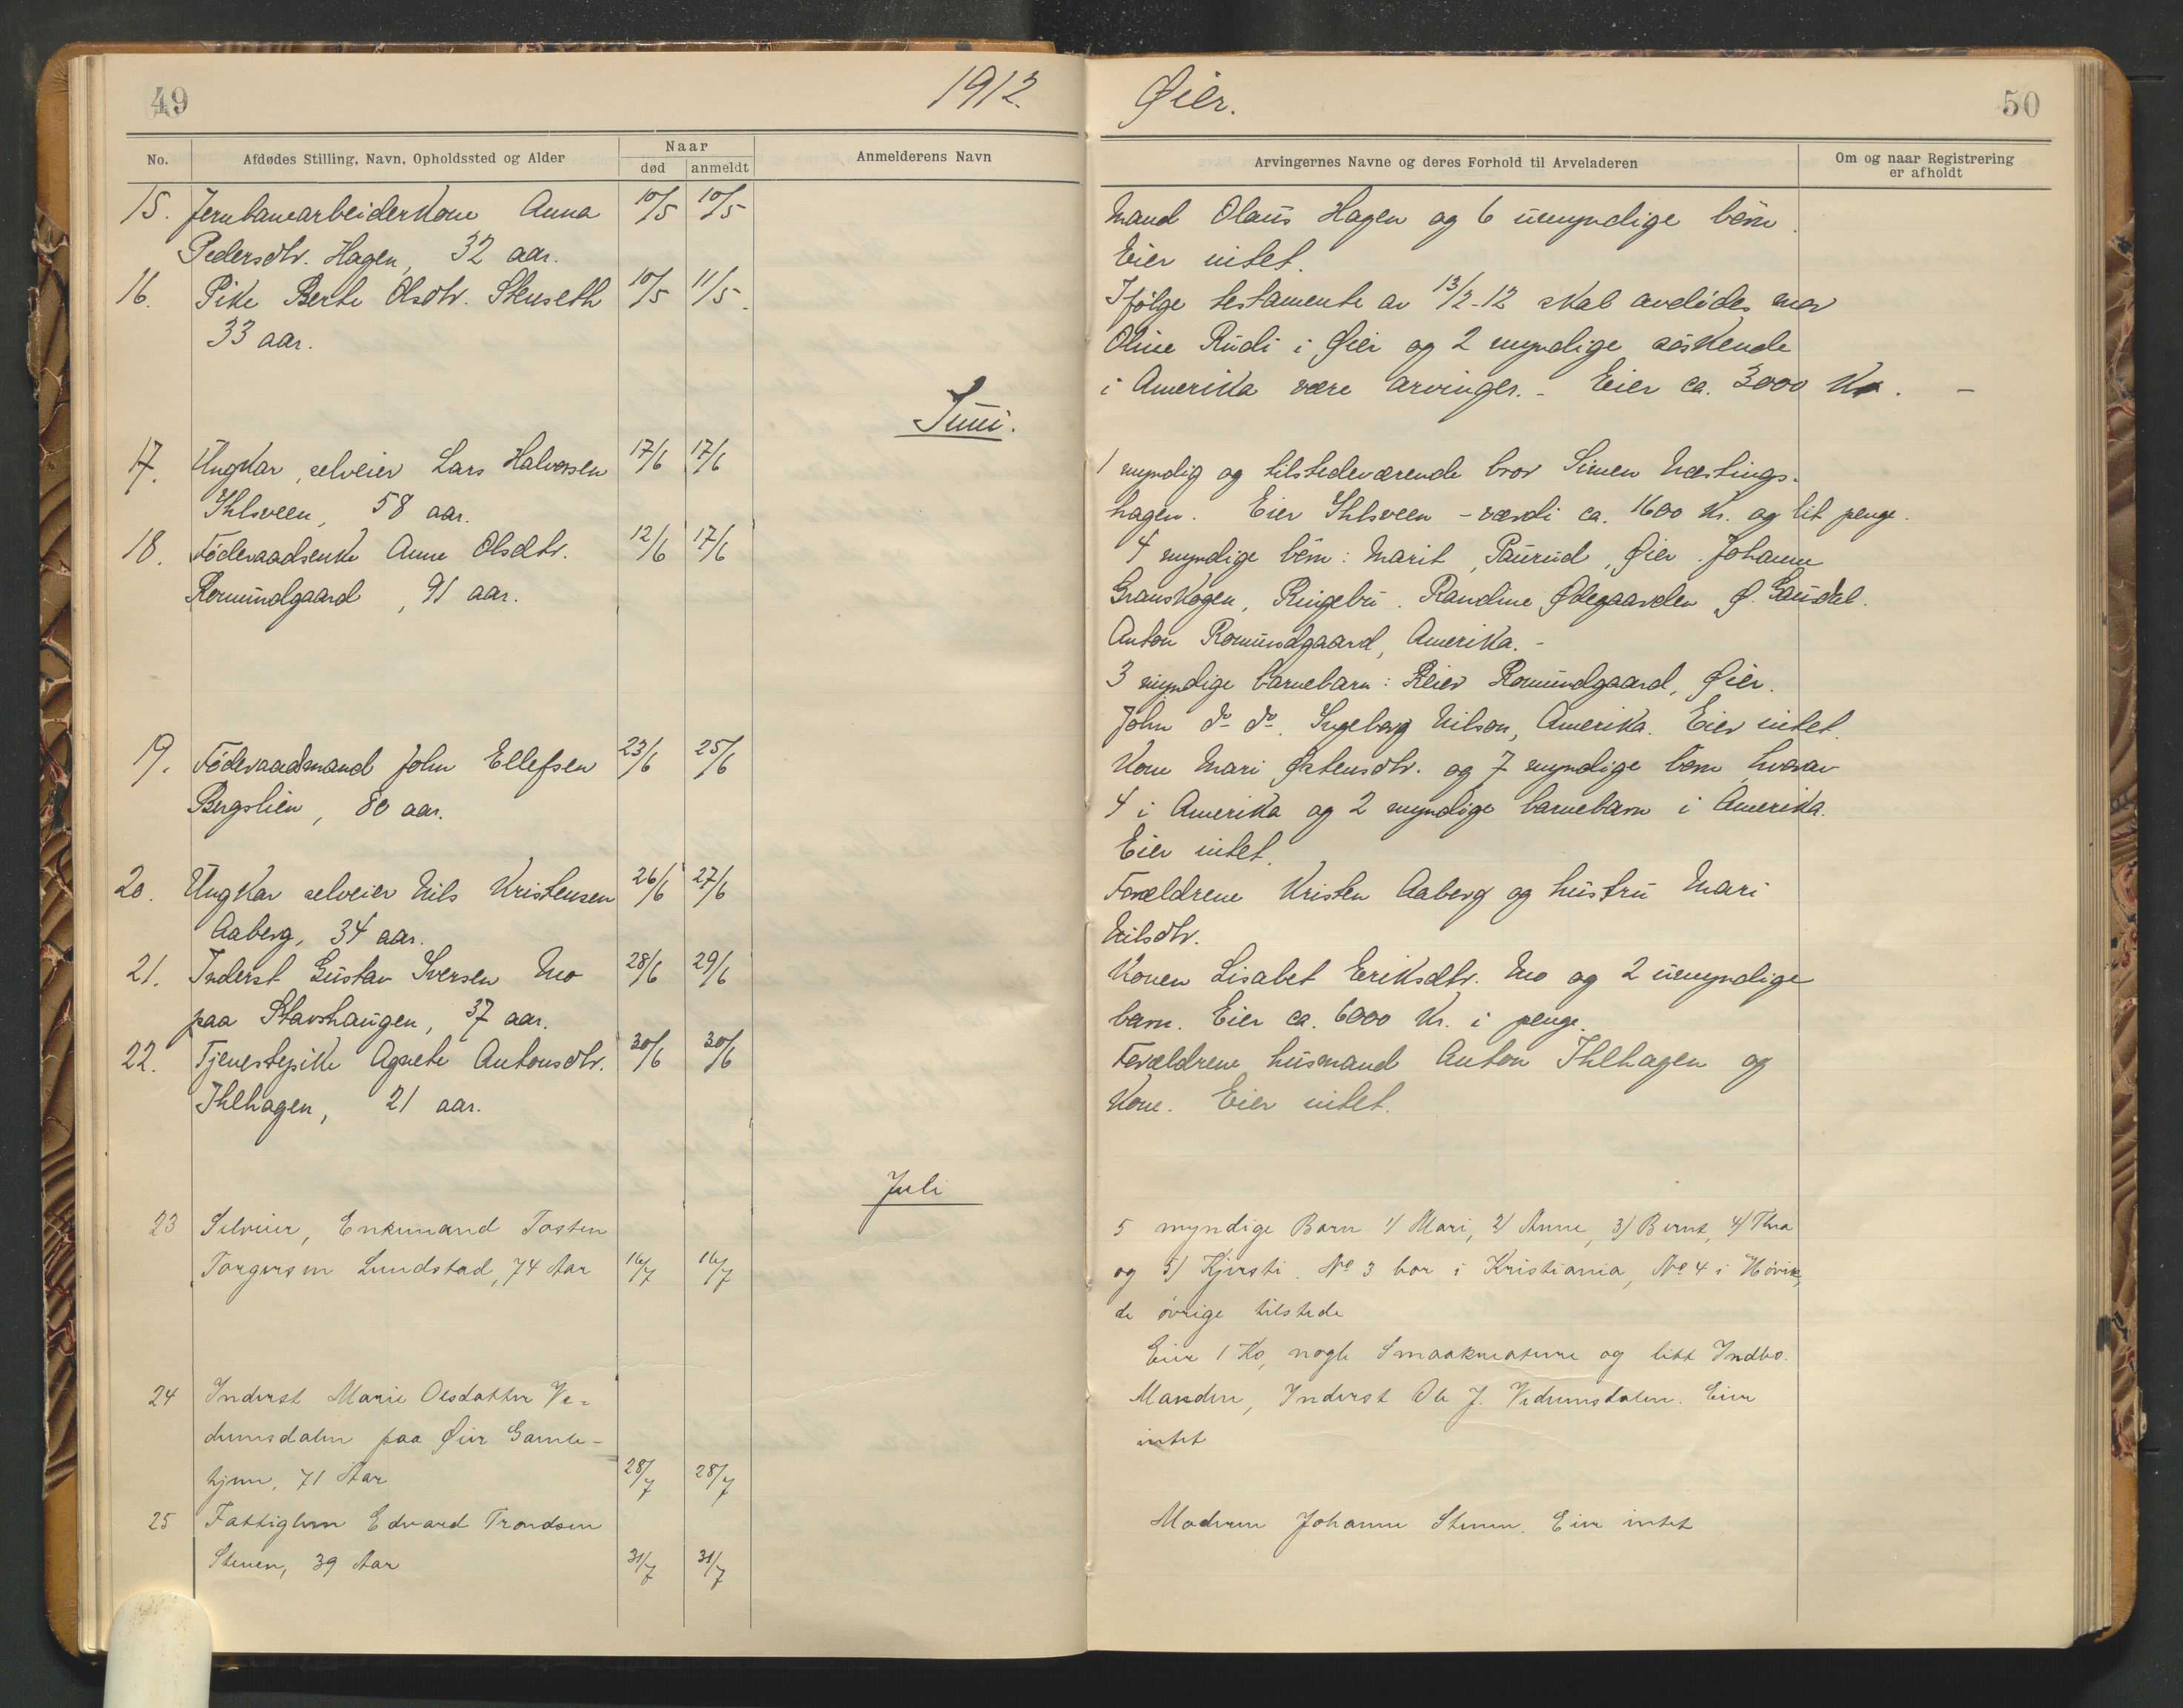 49
1912.
No.
Afdødes Stilling, Navn, Opholdssted og Alder
Naar
død
anmeldt
Anmelderens Navn
15. Jernbanearbeiderkone Anna 10/5 10/5
Pedersdtr. Hagen, 32 aar.
16. Pike Berte Olsdtr. Stenseth 10/5 11/5
33 aar.
Juni.
17. Ungkar, selveier Lars Halvorsen 17/6 17/6
Ihlsveen, 58 aar.
18. Föderaadsenke Anne Olsdtr. 12/6 17/6
Romundgaard, 91 aar.
19. Föderaadmand John Ellefsen 23/6 25/6
Bergslien, 80 aar.
20. Ungkar selveier Nils Kristensen 26/6 27/6
Aaberg, 34 aar.
21. Inderst Gustav Iversen Mo 28/6 29/6
paa Stavshaugen, 37 aar.
22. Tjenestepike Agnete Antonsdtr. 30/6 30/6
Ihlhagen, 21 aar.
Juli
23 Selveier, Enkemand Tosten
Torgersen Lundstad, 74 Aar 16/7 16/7
24 Inderst Marie Olsdatter Ve=
dumsdalen paa Øier Gamle-
hjem, 71 Aar 28/7 28/7
25 Fattiglem Edvard Trondsen
Stenen, 39 Aar 31/7 31/7
Øier.
50
Arvingernes Navne og deres Forhold til Arveladeren
Om og naar Registrering
er afholdt
Mand Olaus Hagen og 6 umyndige börn.
Eier intet.
Ifölge testamente av 13/2-12 skal avdödes mor
Oline Rudi i Øier og 2 myndige söskende
i Amerika være arvinger. - Eier ca. 3000 Kr. -
1 myndig og tilstedeværende bror Simen Næstings-
hagen. Eier Ihlsveen - værdi ca. 1600 Kr. og lit penge.
4 myndige börn: Marit, Paurud, Øier. Johanne
Granskogen, Ringebu. Randine Ødegaarden Ø. Gausdal.
Anton Romundgaard, Amerika. -
3 myndige barnebarn: Reier Romundgaard, Øier.
John do do. Ingeborg Nilson, Amerika. Eier intet.
Kone Mari Østensdtr. og 7 myndige börn hvorav
4 i Amerika og 2 myndige barnebarn i Amerika.
Eier intet.
Forældrene Kristen Aaberg og hustru Mari
Nilsdtr.
Konen Lisabet Eriksdtr. Mo og 2 umyndige
barn. Eier ca. 6000 Kr. i penge.
Forældrene husmand Anton Ihlhagen og
Kone. Eier intet.
5 myndige Barn 1) Mari, 2) Anne, 3) Bernt, 4) Thea
og 5) Kjersti. No 3 bor i Kristiania, No 4 i Hövik,
de övrige tilstede
Eier 1 Ko, nogle Smaakreaturer og litt Indbo.
Manden, Inderst Ole J. Vedumsdalen. Eier
intet
Moderen Johanne Stenen. Eier intet